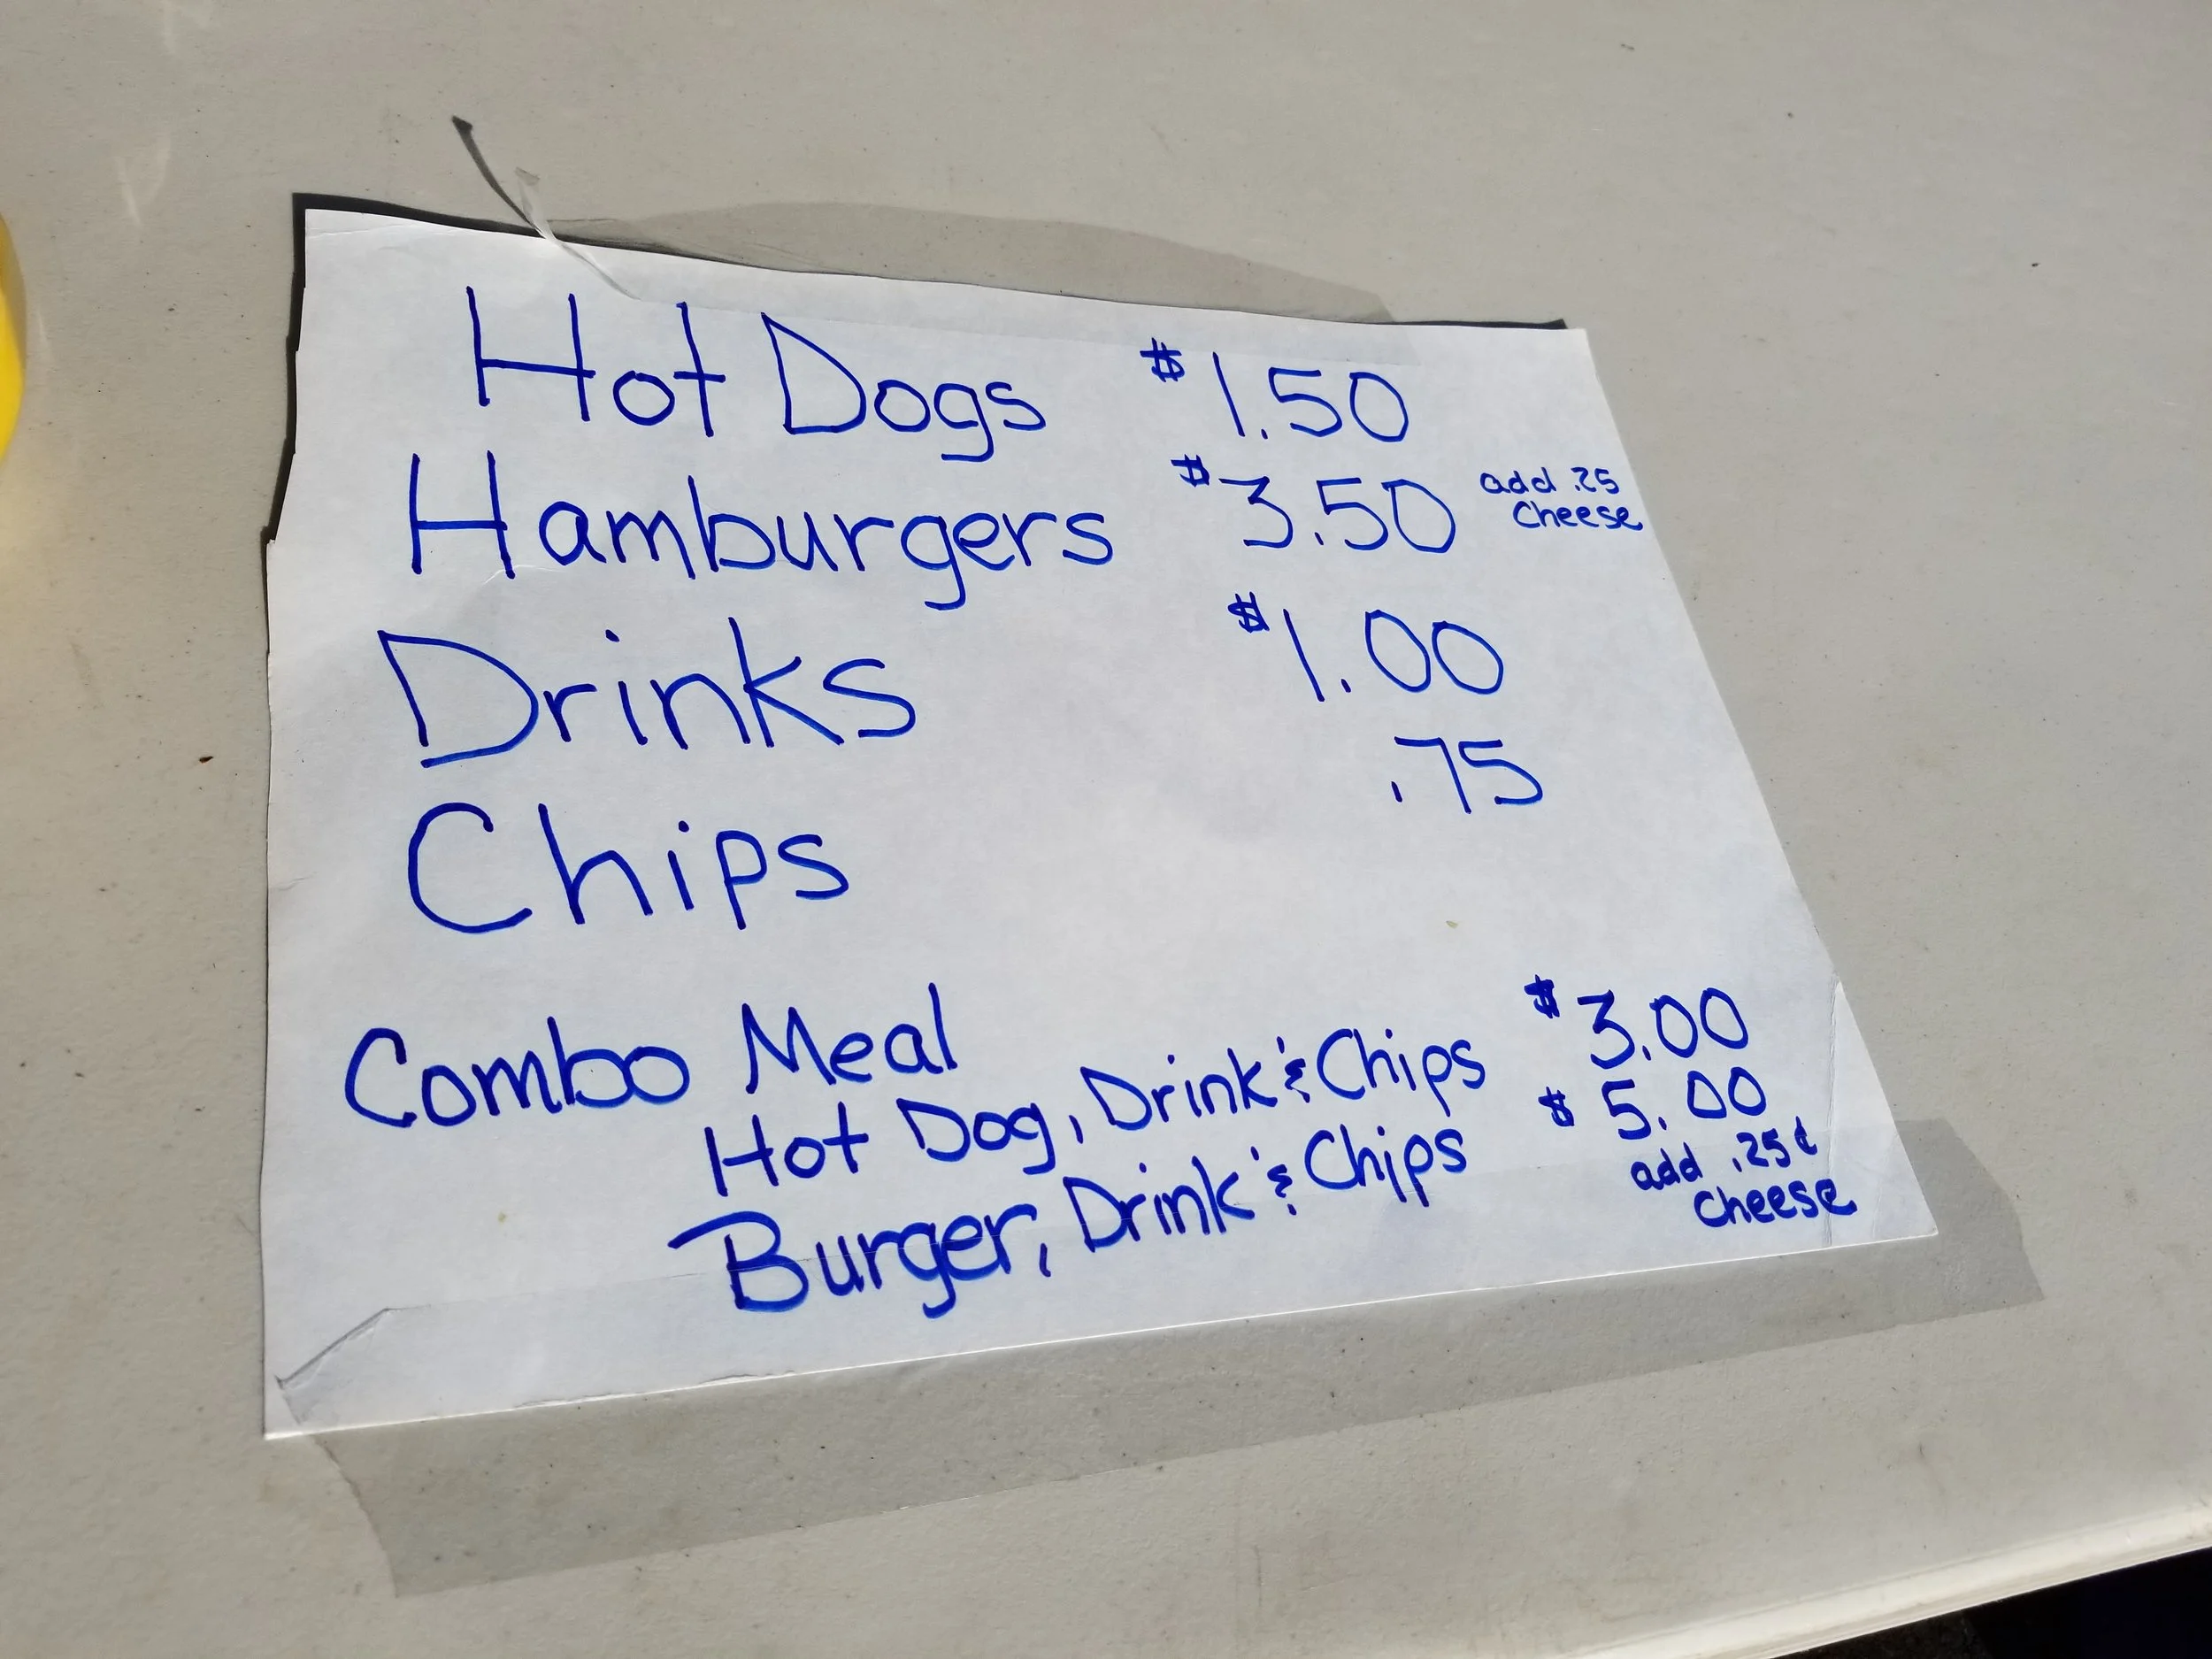 Hot Dogs $1.50
Hamburgers $3.50 add .25 cheese
Drinks $1.00
Chips .75
Combo Meal
Hot Dog, Drink & Chips $3.00
Burger, Drink & Chips $5.00
add .25¢
cheese